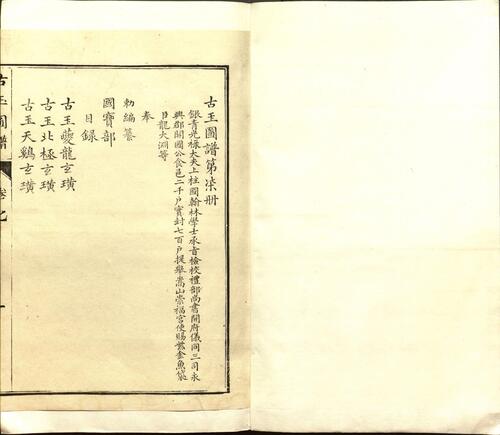 古玉圖譜第柒冊
銀青光祿大夫上柱國翰林學士承旨檢校禮部尚書開府儀同三司永
興郡開國公食邑二千戶實封七百戶提舉嵩山崇福宮使賜紫金魚袋
臣龍大淵等
奉
勅編纂
國寶部
目錄
古玉夔龍玄璜
古玉北極玄璜
古玉天鷄玄璜
古玉圖譜
卷七
一